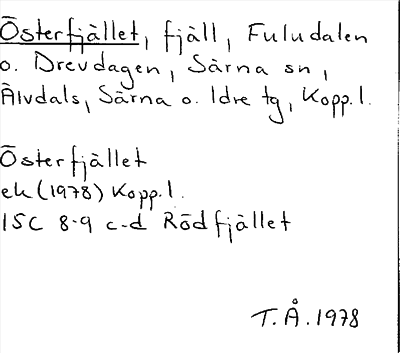 Österfjället, fjäll, Fuludalen
o. Drevdagen, Särna sn,
Älvdals, Särna o. Idre tg, Kopp.l.
Österfjället
ek (1978) Kopp.l.
15C 8-9 c-d Rödfjället
T.Å. 1978